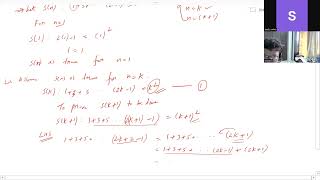 n = k
n = (k+1)
For n=1
S(1) 2(1)-1 = (1)²
1 = 1
S(n) is true for n=1
S(n) is true for n=k
S(k) 1+3+5 ... (2k-1) = k² — ①
To prove S(k+1) to be true
S(k+1) 1+3+5 ... -1) = (k+1)²
LHS 1+3+5+ ... = 1+3+5+ ... (2k+1)
= 1+3+5+ ... (2k-1) + (2k+1)
S